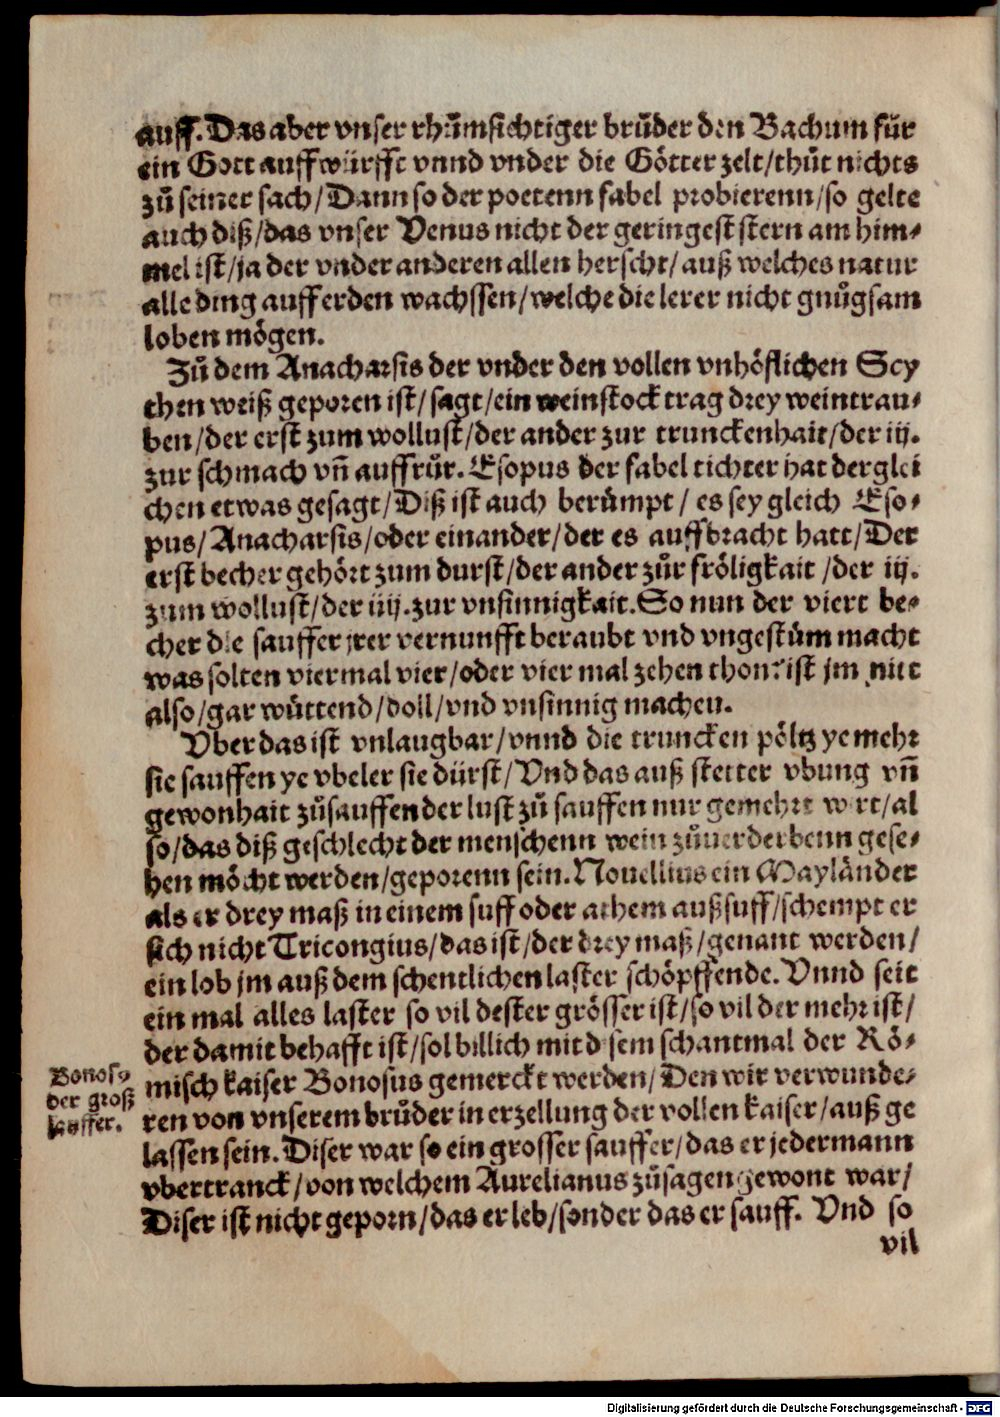 auff. Das aber vnser rhůmsichtiger brůder den Bachum für
ein Gott auffwürfft vnnd vnder die Götter zelt/thůt nichts
zů seiner sach/Dann so der poetenn fabel probierenn/so gelte
auch diß/das vnser Venus nicht der geringest stern am him⸗
mel ist/ja der vnder anderen allen herscht/auß welches natur
alle ding auff erden wachssen/welche die lerer nicht gnůgsam
loben mögen.
Zů dem Anacharsis der vnder den vollen vnhöflichen Scy
then weiß geporen ist/sagt/ein weinstock trag drey weintrau⸗
ben/der erst zum wollust/der ander zur trunckenhait/der iij.
zur schmach vñ auffrůr. Esopus der fabel tichter hat derglei
chen etwas gesagt/Diß ist auch berůmpt/es sey gleich Eso⸗
pus/Anacharsis/oder einander/der es auffbracht hatt/Der
erst becher gehört zum durst/der ander zůr fröligkait/der iij.
zum wollust/der iiij. zur vnsinnigkait. So nun der viert be⸗
cher die sauffer jrer vernunfft beraubt vnd vngestüm macht
was solten viermal vier/oder vier mal zehen thon/ist jm nitt
also/gar wüttend/doll/vnd vnsinnig machen.
Vber das ist vnlaugbar/vnnd die truncken pöltz ye mehr
sie sauffen ye vbeler sie dürst/Vnd das auß stetter vbung vñ
gewonhait zůsauffen der lust zů sauffen nur gemehrt wirt/al
so/das diß geschlecht der menschenn wein zůuerderbenn gese⸗
hen möcht werden/geporenn sein. Nouellius ein Mayländer
als er drey maß in einem suff oder athem außsuff/schempt er
sich nicht Tricongius/das ist/der drey maß/genant werden/
ein lob jm auß dem schentlichen laster schöpffende. Vnnd seit
ein mal alles laster so vil dester grösser ist/so vil der mehr ist/
der damit behafft ist/sol billich mit disem schantmal der Rö⸗
misch kaiser Bonosus gemerckt werden/Den wir verwunde⸗
ren von vnserem brůder in erzellung der vollen kaiser/auß ge
lassen sein. Diser war so ein grosser sauffer/das er jedermann
vbertranck/von welchem Aurelianus zůsagen gewont war/
Diser ist nicht geporn/das er leb/sonder das er sauff. Vnd so
vil
Bonosꝰ
der groß
sauffer.
Digitalisierung gefördert durch die Deutsche Forschungsgemeinschaft - DFG